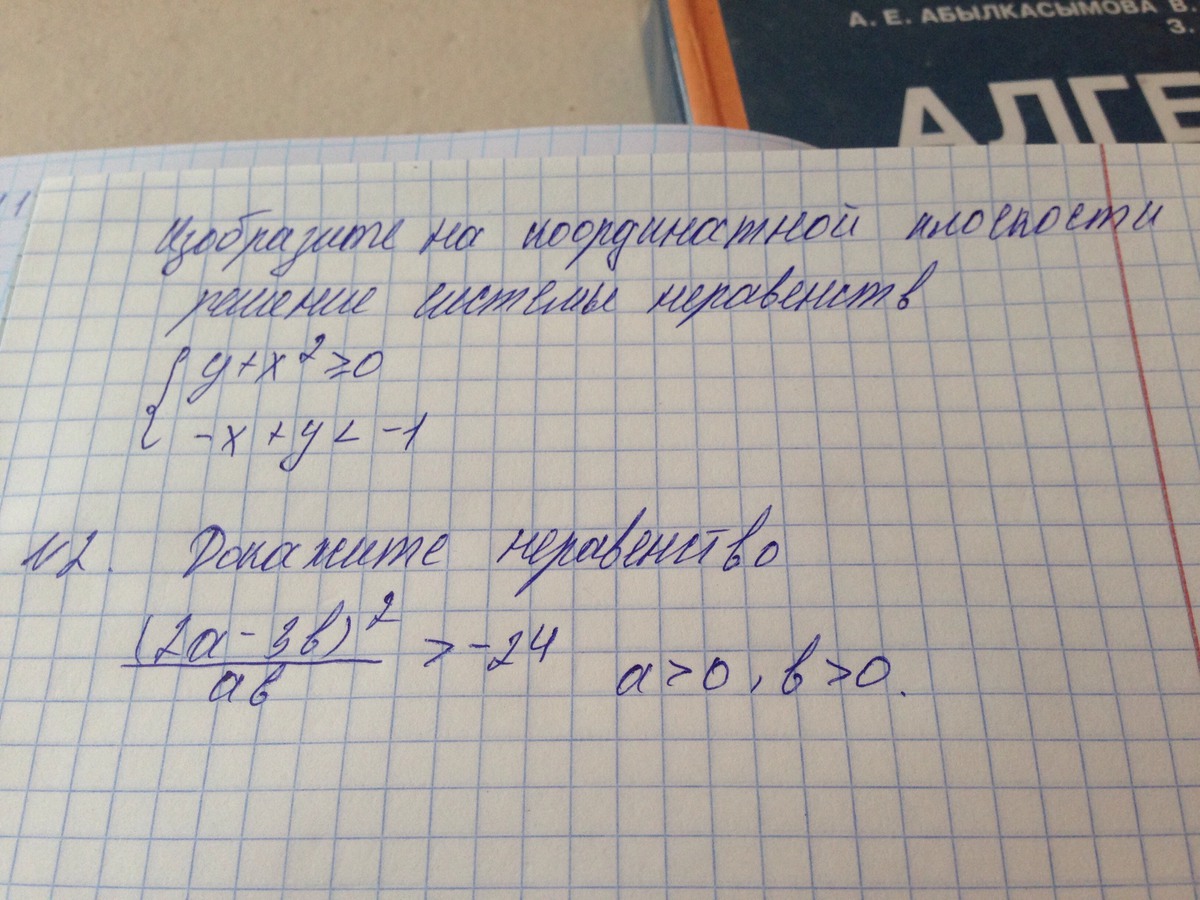 А. Е. АБЫЛКАСЫМОВА В.
З.
АЛГЕ
Изобразите на координатной плоскости
решение системы неравенств
{ y+x² ≥0
-x+y < -1
N2. Докажите неравенство
(2a-3b)²/ab > -24 a>0, b>0.